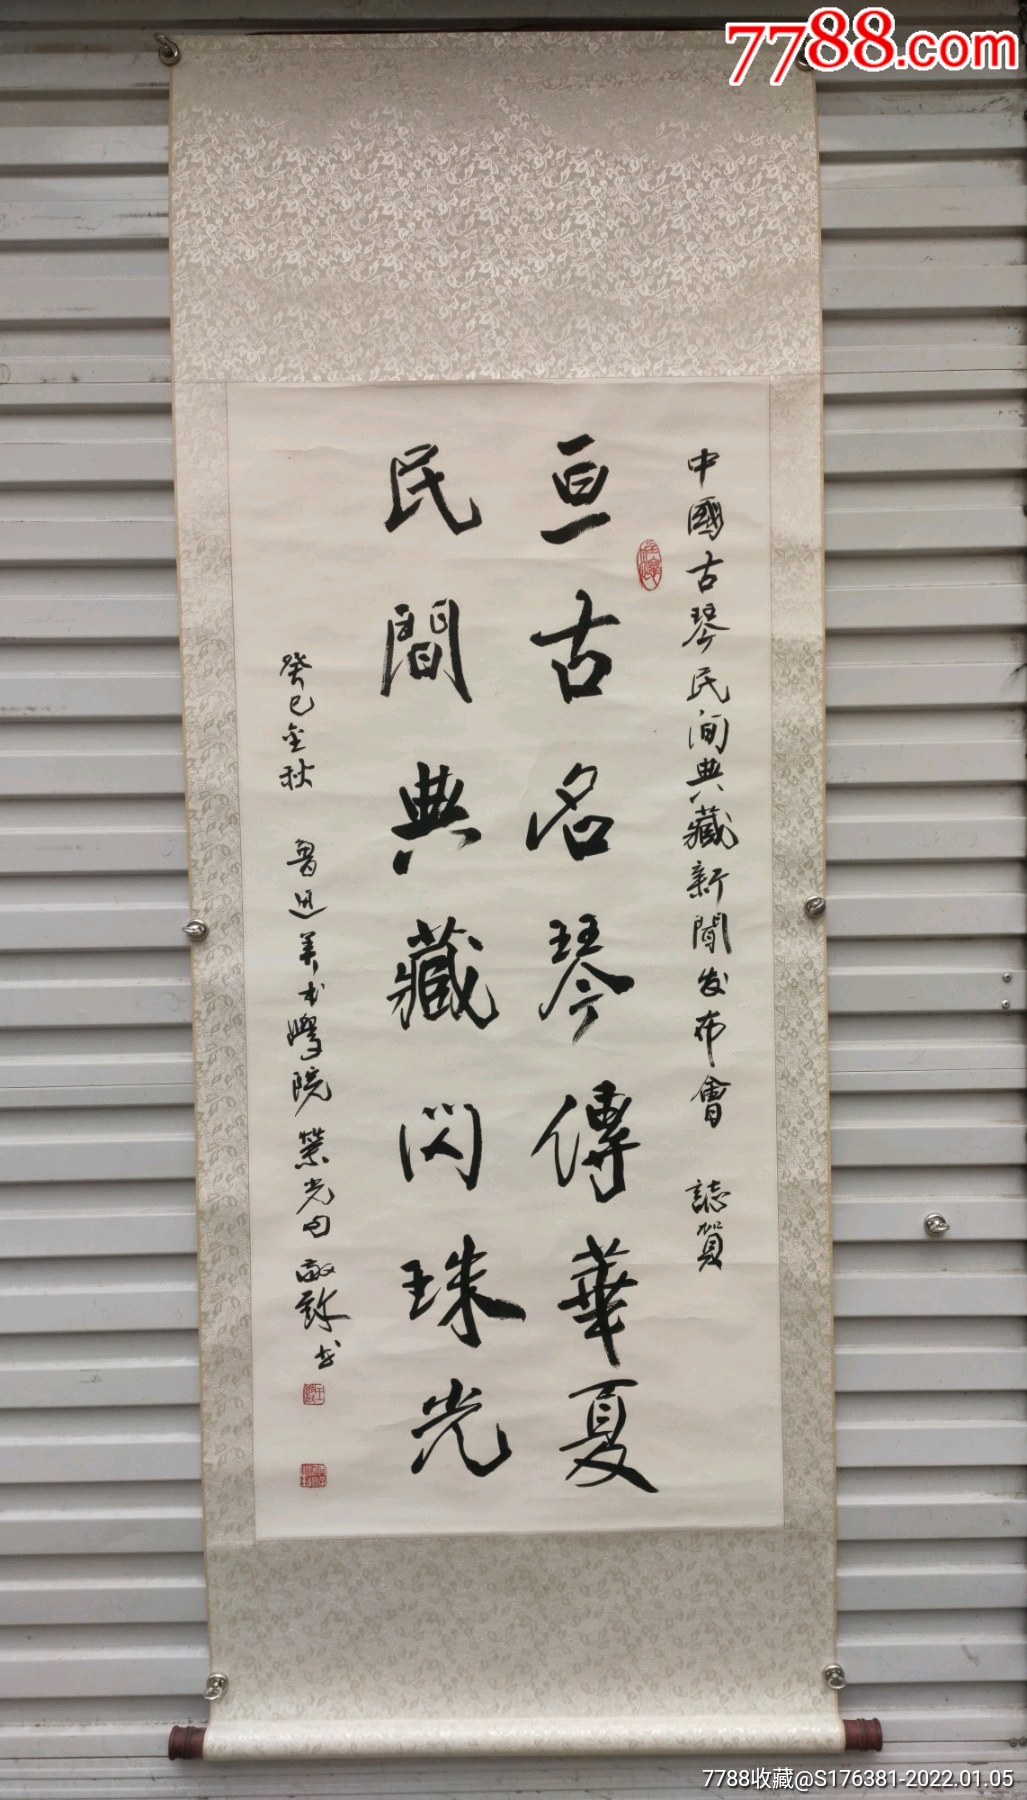 7788.com
中國古琴民间典藏新聞发布會 誌賀
亘古名琴傳華夏
民間典藏閃珠光
癸巳金秋 魯迅美术學院
7788收藏@S176381-2022.01.05